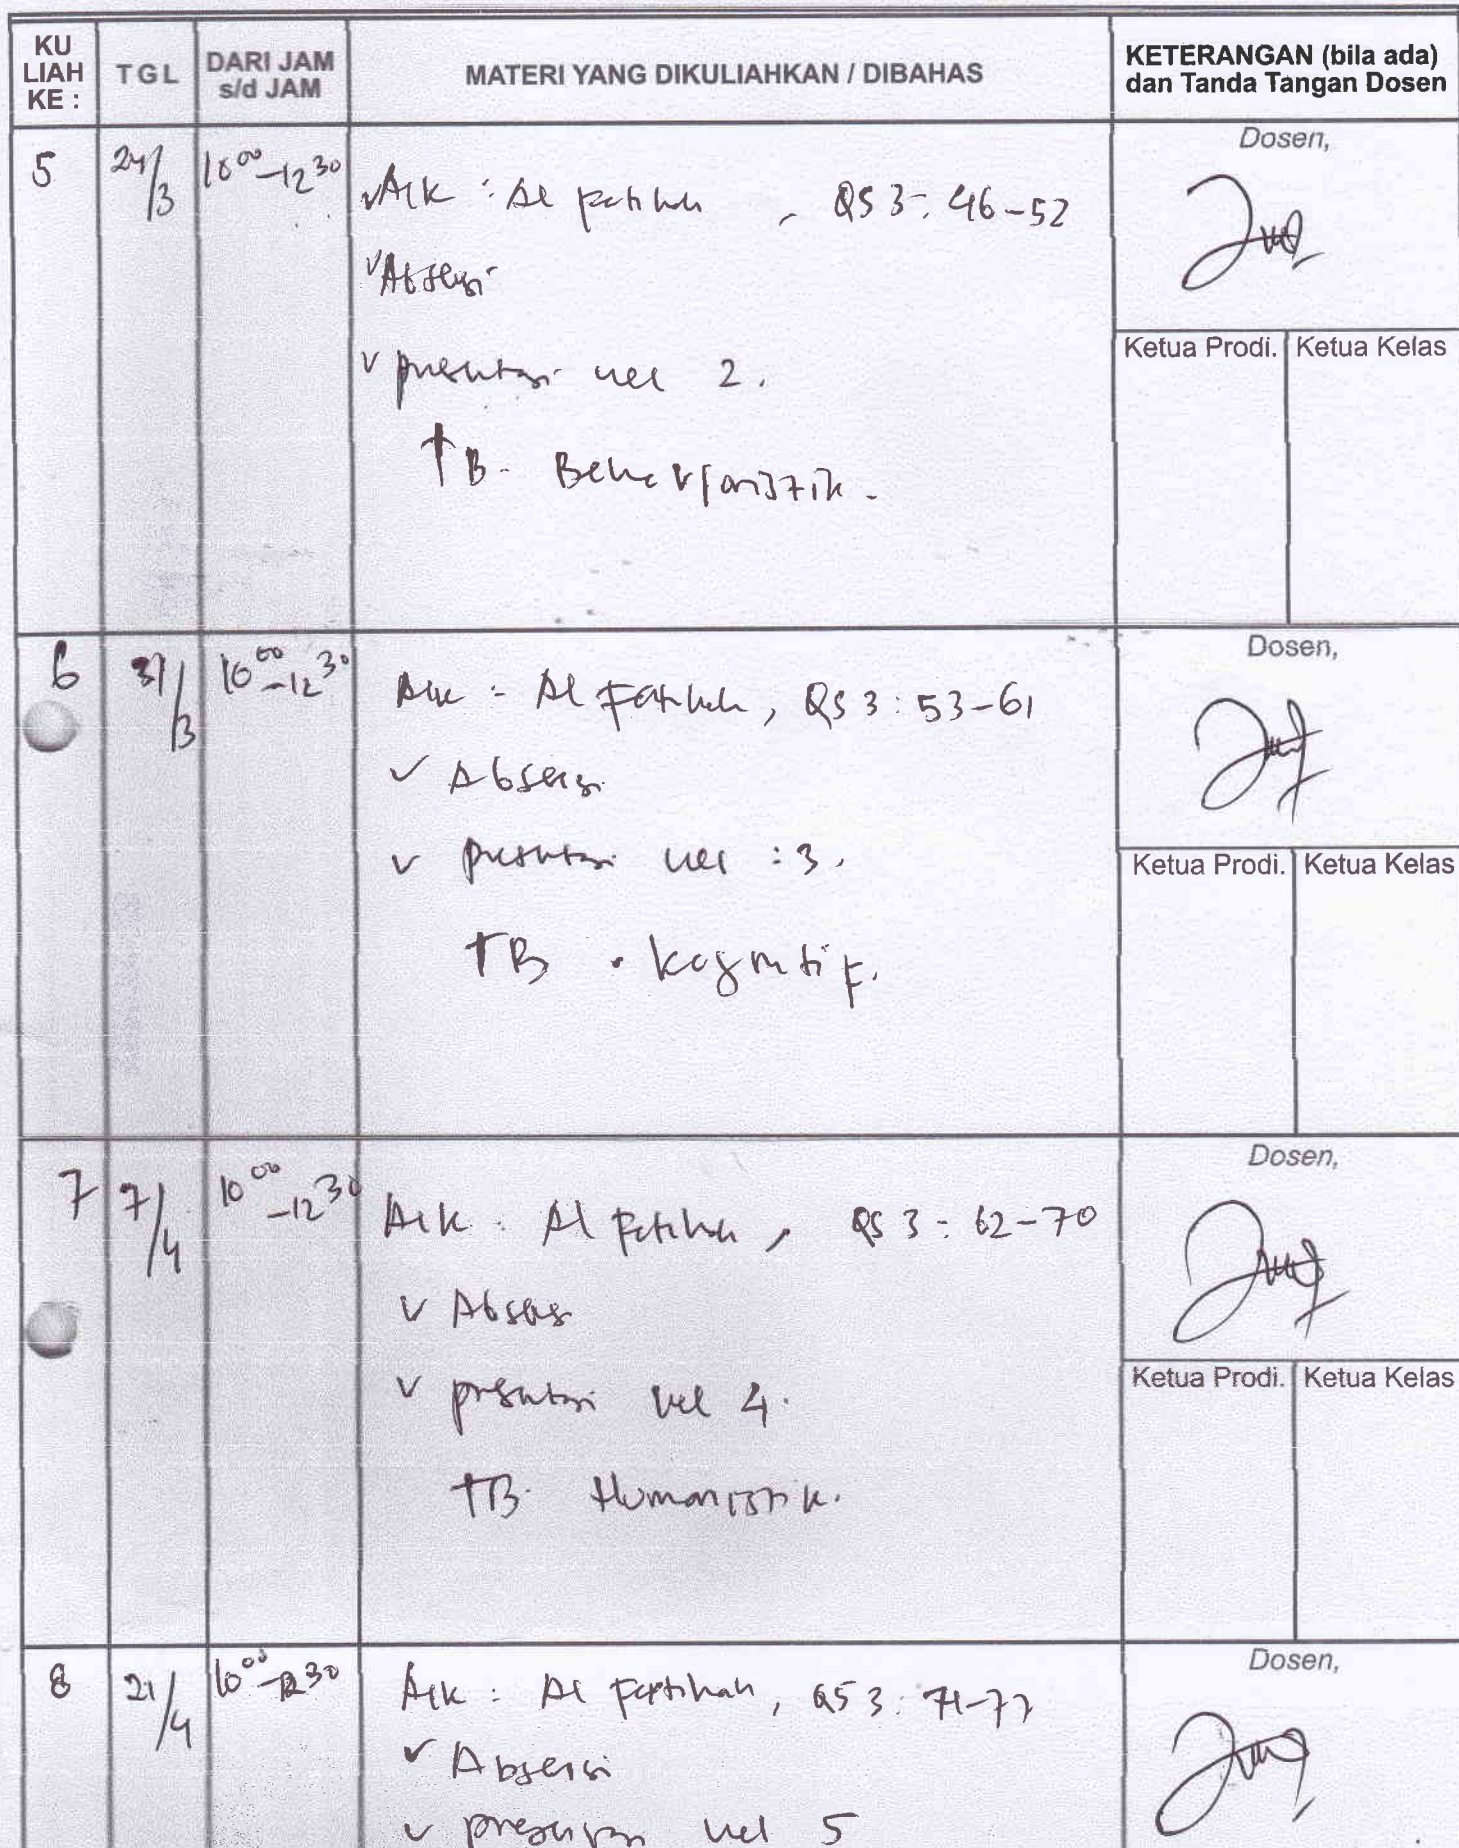 KU LIAH KE :
TGL
DARI JAM s/d JAM
MATERI YANG DIKULIAHKAN / DIBAHAS
KETERANGAN (bila ada) dan Tanda Tangan Dosen
5 24/3 10 00 - 12 30
AIK : Al Fatihah , QS 3 : 46-52
v Absensi
v presentasi kel 2.
TB. Behavioristik.
Dosen,
Ketua Prodi. Ketua Kelas
6 31/3 10 00 - 12 30
AIK : Al Fatihah, QS 3 : 53-61
v Absensi
v presentasi kel : 3.
TB . kognitif.
Dosen,
Ketua Prodi. Ketua Kelas
7 7/4 10 00 - 12 30
AIK : Al Fatihah , QS 3 : 62-70
v Absensi
v presentasi kel 4.
TB. Humanistik.
Dosen,
Ketua Prodi. Ketua Kelas
8 21/4 10 00 - 12 30
AIK : Al Fatihah, QS 3 : 71-77
v Absensi
v presentasi kel 5
Dosen,